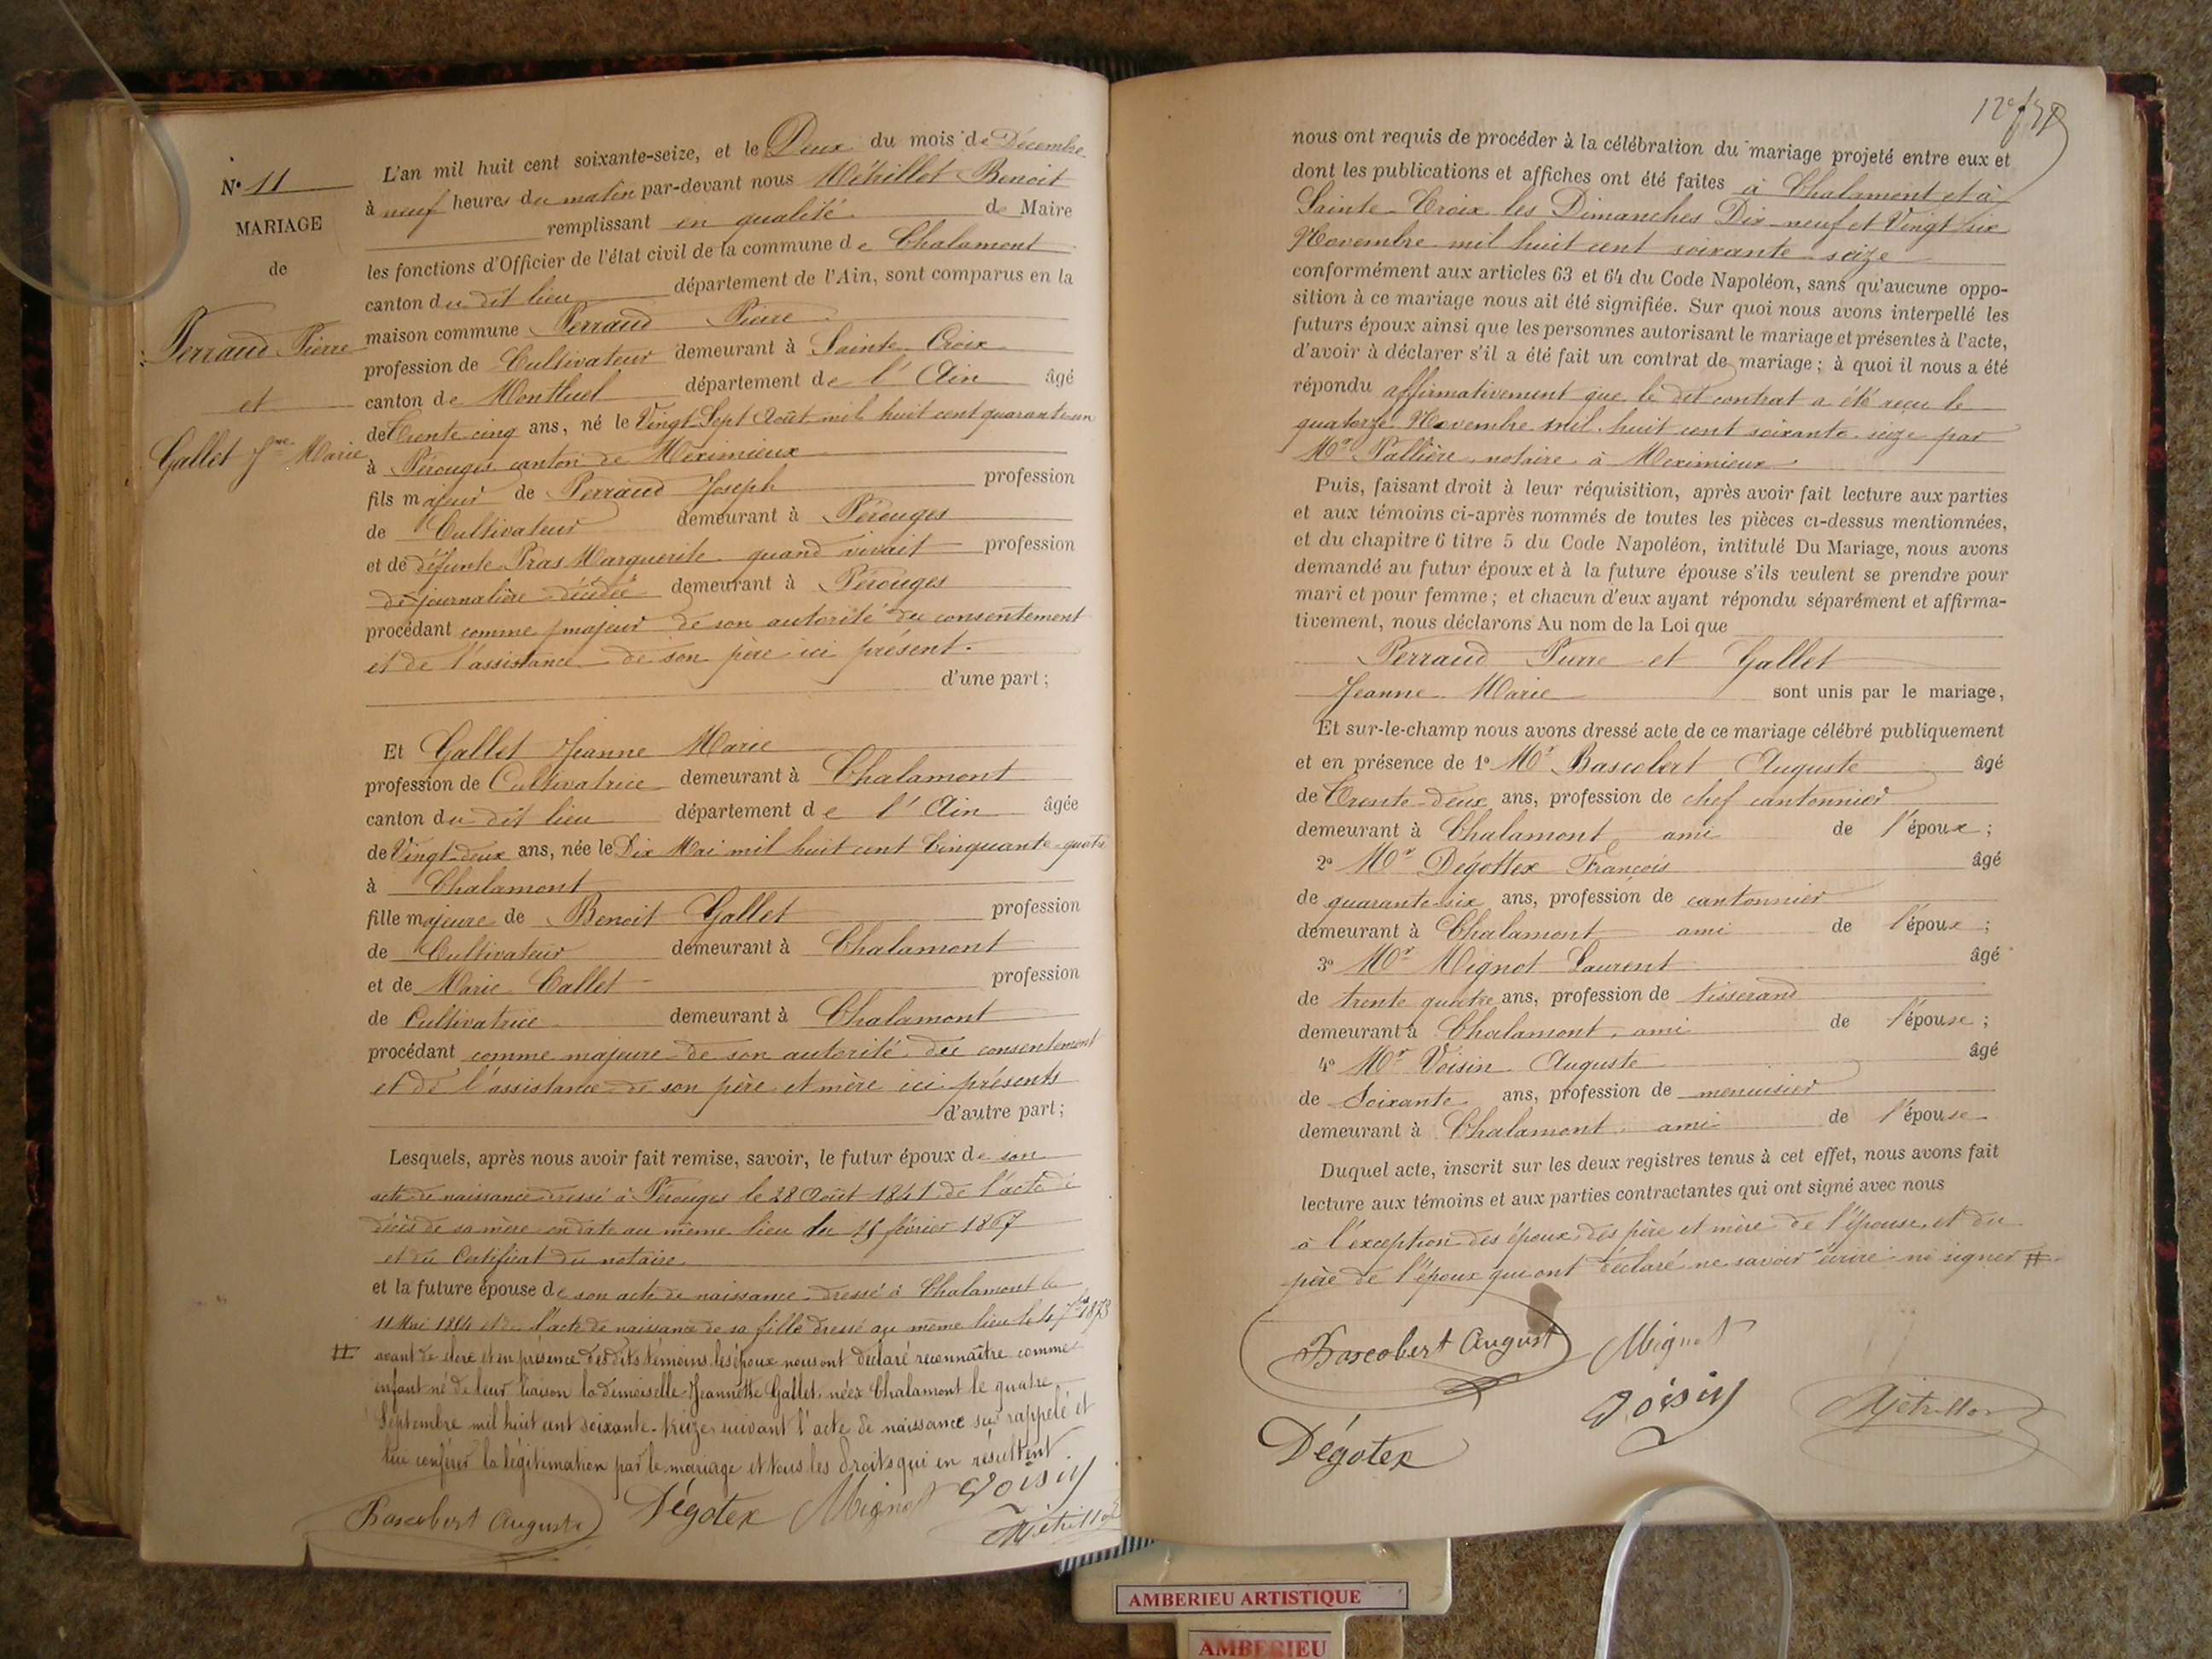 N° 11
MARIAGE
de
Perraud Pierre
et
Gallet Jne Marie
L'an mil huit cent soixante-seize, et le Deux du mois de Décembre
à neuf heures du matin par-devant nous Métrillot Benoit
remplissant en qualité de Maire
les fonctions d'Officier de l'état civil de la commune de Chalamont
canton du dit lieu département de l'Ain, sont comparus en la
maison commune Perraud Pierre
profession de Cultivateur demeurant à Sainte Croix
canton de Montluel département de l'Ain âgé
de Trente cinq ans, né le Vingt Sept Août mil huit cent quarante un
à Pérouges canton de Meximieux
fils majeur de Perraud Joseph profession
de Cultivateur demeurant à Pérouges
et de défunte Pras Marguerite quand vivait profession
de journalière décédée demeurant à Pérouges
procédant comme majeur de son autorité du consentement
et de l'assistance de son père ici présent.
d'une part;
Et Gallet Jeanne Marie
profession de Cultivatrice demeurant à Chalamont
canton du dit lieu département de l'Ain âgée
de Vingt-deux ans, née le Dix Mai mil huit cent Cinquante-quatre
à Chalamont
fille majeure de Benoit Gallet profession
de Cultivateur demeurant à Chalamont
et de Marie Callet profession
de Cultivatrice demeurant à Chalamont
procédant comme majeure de son autorité du consentement
et de l'assistance de son père et mère ici présents
d'autre part;
Lesquels, après nous avoir fait remise, savoir, le futur époux de son
acte de naissance dressé à Pérouges le 28 Août 1841 de l'acte de
décès de sa mère en date au même lieu du 15 février 1867
et du Certificat du notaire
et la future épouse de son acte de naissance dressé à Chalamont le
11 Mai 1854 et de l'acte de naissance de sa fille dressé au même lieu le 4 7bre 1873
# avant de clore et en présence des dits témoins les époux nous ont déclaré reconnaître comme
enfant né de leur liaison la demoiselle Jeannette Gallet née à Chalamont le quatre
Septembre mil huit cent soixante-treize suivant l'acte de naissance sus rappelé et
lui conférer la légitimation par le mariage et tous les droits qui en résultent
Bascobert Auguste Dégotex Mignot Voisin
Métrillot
nous ont requis de procéder à la célébration du mariage projeté entre eux et
dont les publications et affiches ont été faites à Chalamont et à
Sainte-Croix les Dimanches Dix-neuf et Vingt six
Novembre mil huit cent soixante-seize
conformément aux articles 63 et 64 du Code Napoléon, sans qu'aucune oppo-
sition à ce mariage nous ait été signifiée. Sur quoi nous avons interpellé les
futurs époux ainsi que les personnes autorisant le mariage et présentes à l'acte,
d'avoir à déclarer s'il a été fait un contrat de mariage; à quoi il nous a été
répondu affirmativement que le dit contrat a été reçu le
quatorze Novembre mil huit cent soixante-seize par
Mr Pallière notaire à Meximieux
Puis, faisant droit à leur réquisition, après avoir fait lecture aux parties
et aux témoins ci-après nommés de toutes les pièces ci-dessus mentionnées,
et du chapitre 6 titre 5 du Code Napoléon, intitulé Du Mariage, nous avons
demandé au futur époux et à la future épouse s'ils veulent se prendre pour
mari et pour femme; et chacun d'eux ayant répondu séparément et affirma-
tivement, nous déclarons Au nom de la Loi que
Perraud Pierre et Gallet
Jeanne Marie sont unis par le mariage,
Et sur-le-champ nous avons dressé acte de ce mariage célébré publiquement
et en présence de 1° Mr Bascobert Auguste âgé
de Trente-deux ans, profession de chef cantonnier
demeurant à Chalamont ami de l'époux;
2° Mr Dégottex François âgé
de quarante-six ans, profession de cantonnier
demeurant à Chalamont ami de l'époux;
3° Mr Mignot Laurent âgé
de trente quatre ans, profession de tisserand
demeurant à Chalamont, ami de l'épouse;
4° Mr Voisin Auguste âgé
de Soixante ans, profession de menuisier
demeurant à Chalamont ami de l'épouse
Duquel acte, inscrit sur les deux registres tenus à cet effet, nous avons fait
lecture aux témoins et aux parties contractantes qui ont signé avec nous
à l'exception des époux, des père et mère de l'épouse, et du
père de l'époux qui ont déclaré ne savoir écrire ni signer #
Bascobert August Mignot
Voisin Métrillot
Dégotex
AMBERIEU ARTISTIQUE
AMBERIEU